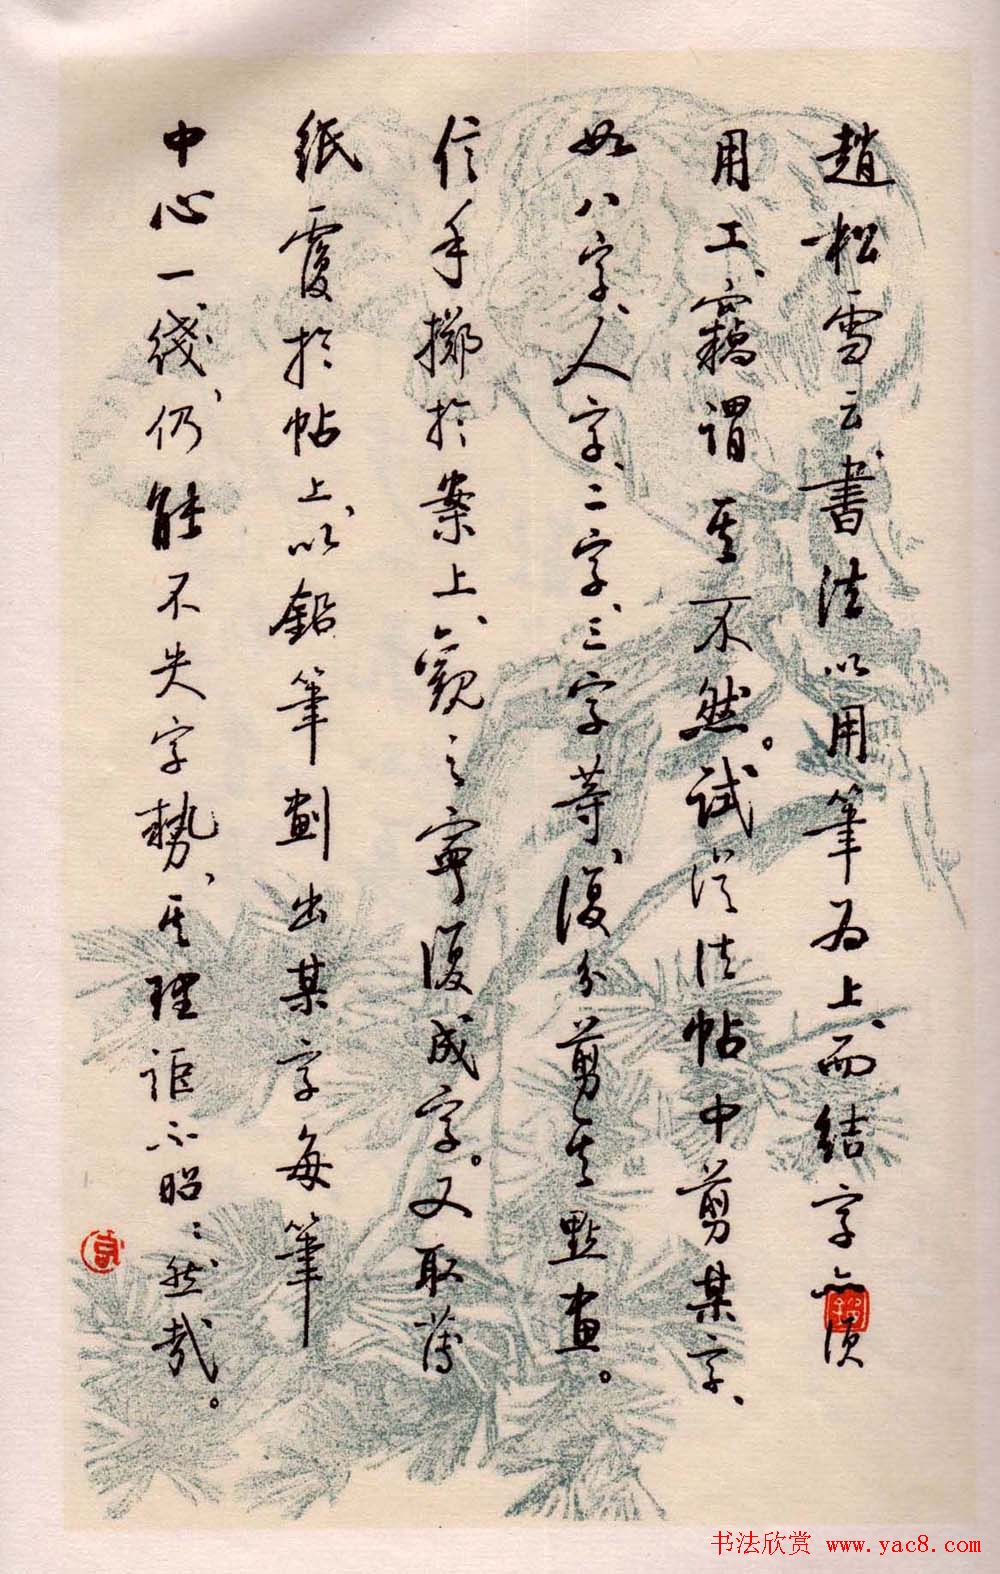 趙松雪云書法以用筆為上、而結字亦須
用工、竊謂其不然。試從法帖中剪某字、
如八字、人字、二字、三字等、復分剪其點畫。
信手擲於案上、觀之寧復成字。又取薄
紙覆於帖上、以鉛筆劃出某字每筆
中心一綫、仍能不失字勢、其理詎不昭昭然哉。
书法欣赏 www.yac8.com